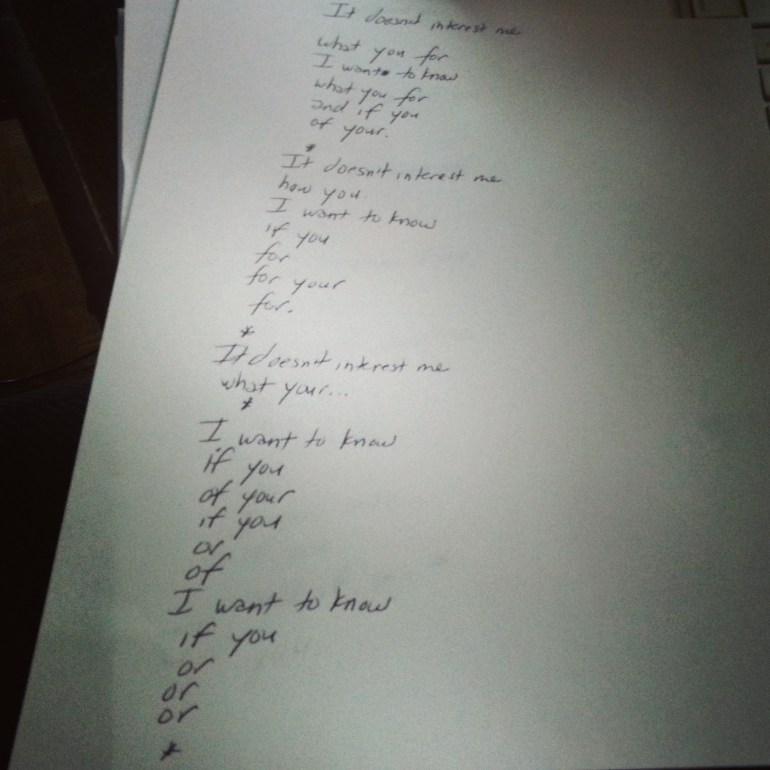 It doesn't interest me
what you for
I want to know
what you for
and if you
of your.
*
It doesn't interest me
how you.
I want to know
if you
for
for your
for.
*
It doesn't interest me
what your...
*
I want to know
if you
of your
if you
or
of
I want to know
if you
or
or
or
*